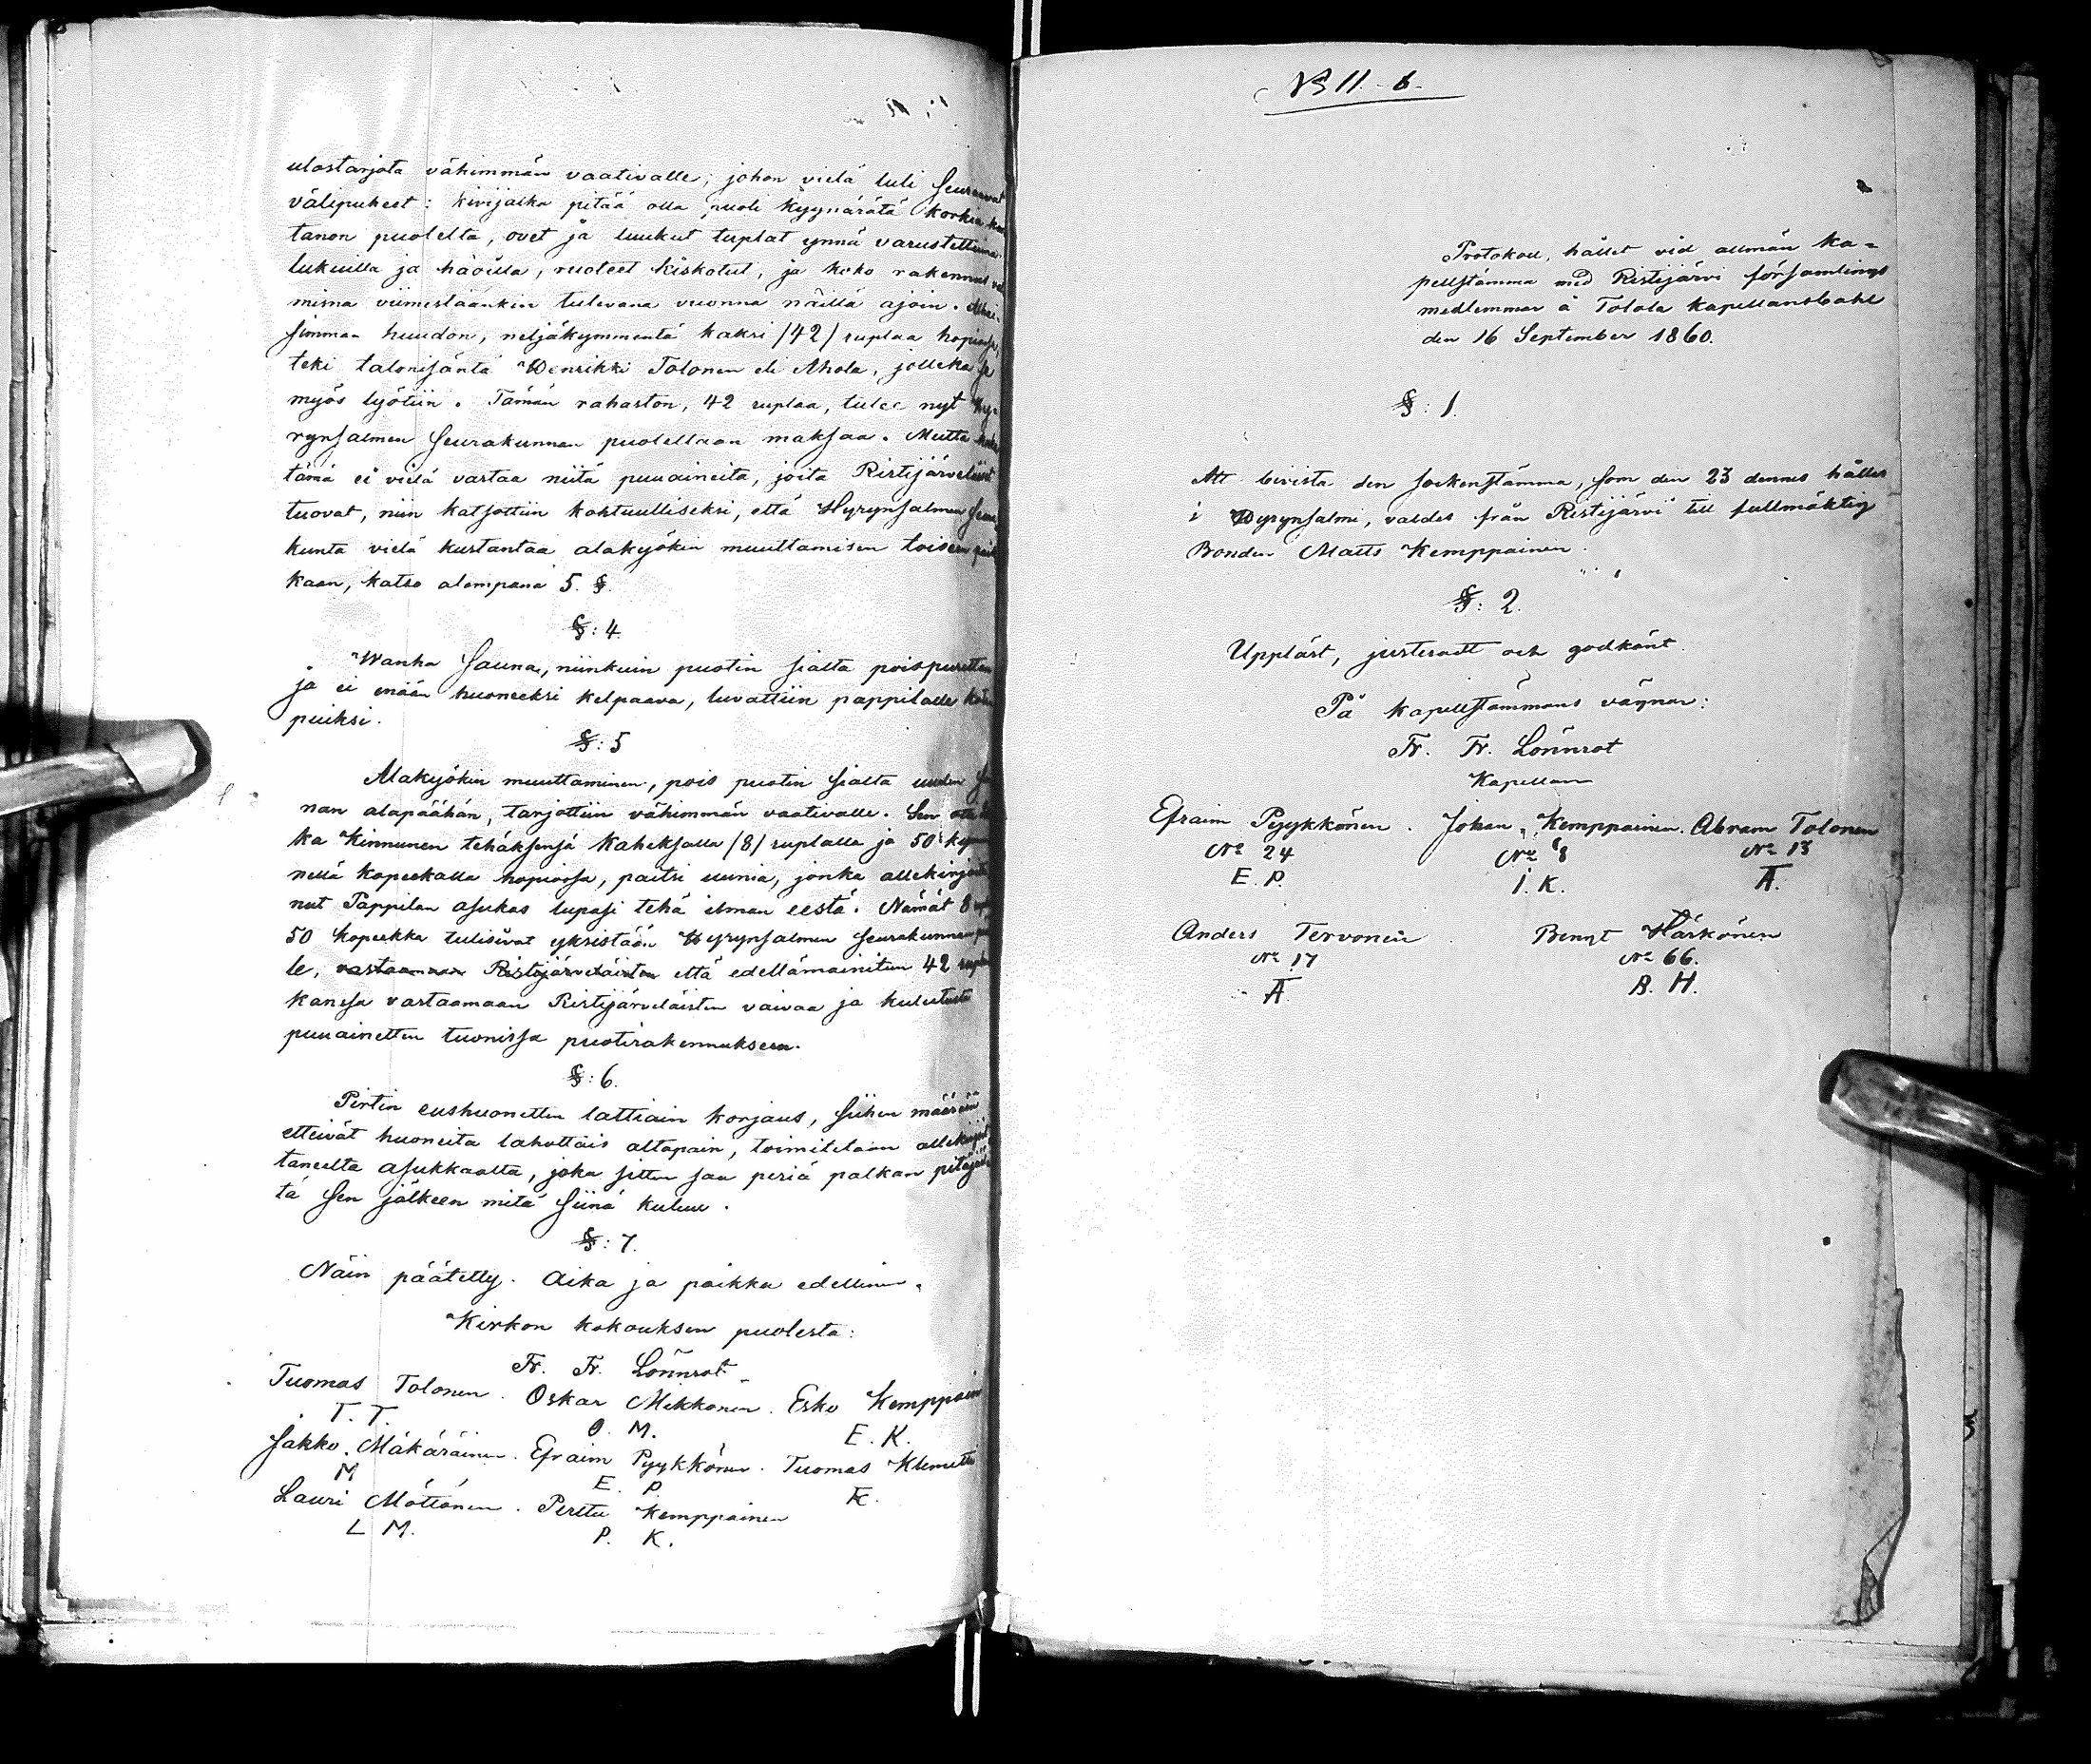 ulostarjota vähimmän vaativalle; johon vielä tuli seuraavat
välipuheet: kivijalka pitää olla puoli kyynärätä korkia
tanon puolelta, ovet ja luukut tuplat ynnä varustettuna
lukuilla ja häöillä, ruoteet kiskotut, ja koko rakennus
misna viimestäänkin tulevana vuonna näillä ajoin.
simman huudon, neljäkymmentä kaksi /42/ ruplaa hopiassa,
teki talonisäntä Henrikki Tolonen eli Ahola, jolleka se
myös lyötiin. Tämän rahaston, 42 ruplaa, tulee nyt Hy-
rynsalmen seurakunnan puolellaan maksaa. Mutta
tämä ei vielä vastaa niitä puuaineita, joita Ristijärveläiset
tuovat, niin katsottiin kohtuulliseksi, että Hyrynsalmen seura
kunta vielä kustantaa alakyökin muuttamisen toiseen paik
kaan, katso alempana 5. §.
§: 4.
Wanha sauna, niinkuin puotin sialta poispurettu
ja ei enään huoneeksi kelpaava, luvattiin pappilalle
puiksi.
§: 5
Alakyökin muuttaminen, pois puotin sialta uuden
nan alapäähän, tarjottiin vähimmän vaativalle. Sen otti
ka Kinnunen tehäksensä kaheksalla /8/ ruplalla ja 50
nellä kopeekalla hopiassa, paitsi uunia, jonka allekirjoitta
nut Pappilan asukas lupasi tehä ilman eestä. Nämät 8
50 kopeekka tulisivat yksistään Hyrynsalmen seurakunnan
le, vastaamaan Ristijärveläisten että edellämainitun 42 ruplan
kanssa vastaamaan Ristijärveläisten vaivaa ja kulutusta
puuainetten tuonissa puotirakennukseen.
§: 6.
Pirtin eushuonetten lattiain korjaus, siihen määrään
etteivät huoneita lahottais altapäin, toimitetaan allekirjoit
taneelta asukkaalta, joka sitten saa periä palkan pitäjäl
tä sen jälkeen mitä siinä kuluu.
§: 7.
Näin päätetty. Aika ja paikka edellinen.
Kirkon kokouksen puolesta:
Fr. Fr. Lönnrot
Tuomas Tolonen. Oskar Mikkonen. Esko Kemppainen
T. T. O. M. E. K.
Jakko Mäkäräinen. Efraim Pyykkönen. Tuomas Klemetti
M E. P. K.
Lauri Möttönen. Perttu Kemppainen
L M. P. K.
№ 11. 6.
Protokoll, hållet vid allmän ka-
pellstämma med Ristijärvi församlings
medlemmar å Tolola kapellansbohl
den 16 September 1860.
§: 1.
Att bevista den sockenstämma, som den 23 dennes hålles
i Hyrynsalmi, valdes från Ristijärvi till fullmäktig
Bonden Matts Kemppainen.
§: 2.
Uppläst, justeradt och godkänt.
På kapellstämmans vägnar:
Fr. Fr. Lönnrot
Kapellan
Efraim Pyykkönen. Johan Kemppainen. Abram Tolonen
№ 24 № 8 № 13
E. P. I. K. A.
Anders Tervonen. Bengt Härkönen
№ 17 № 66.
A. B. H.